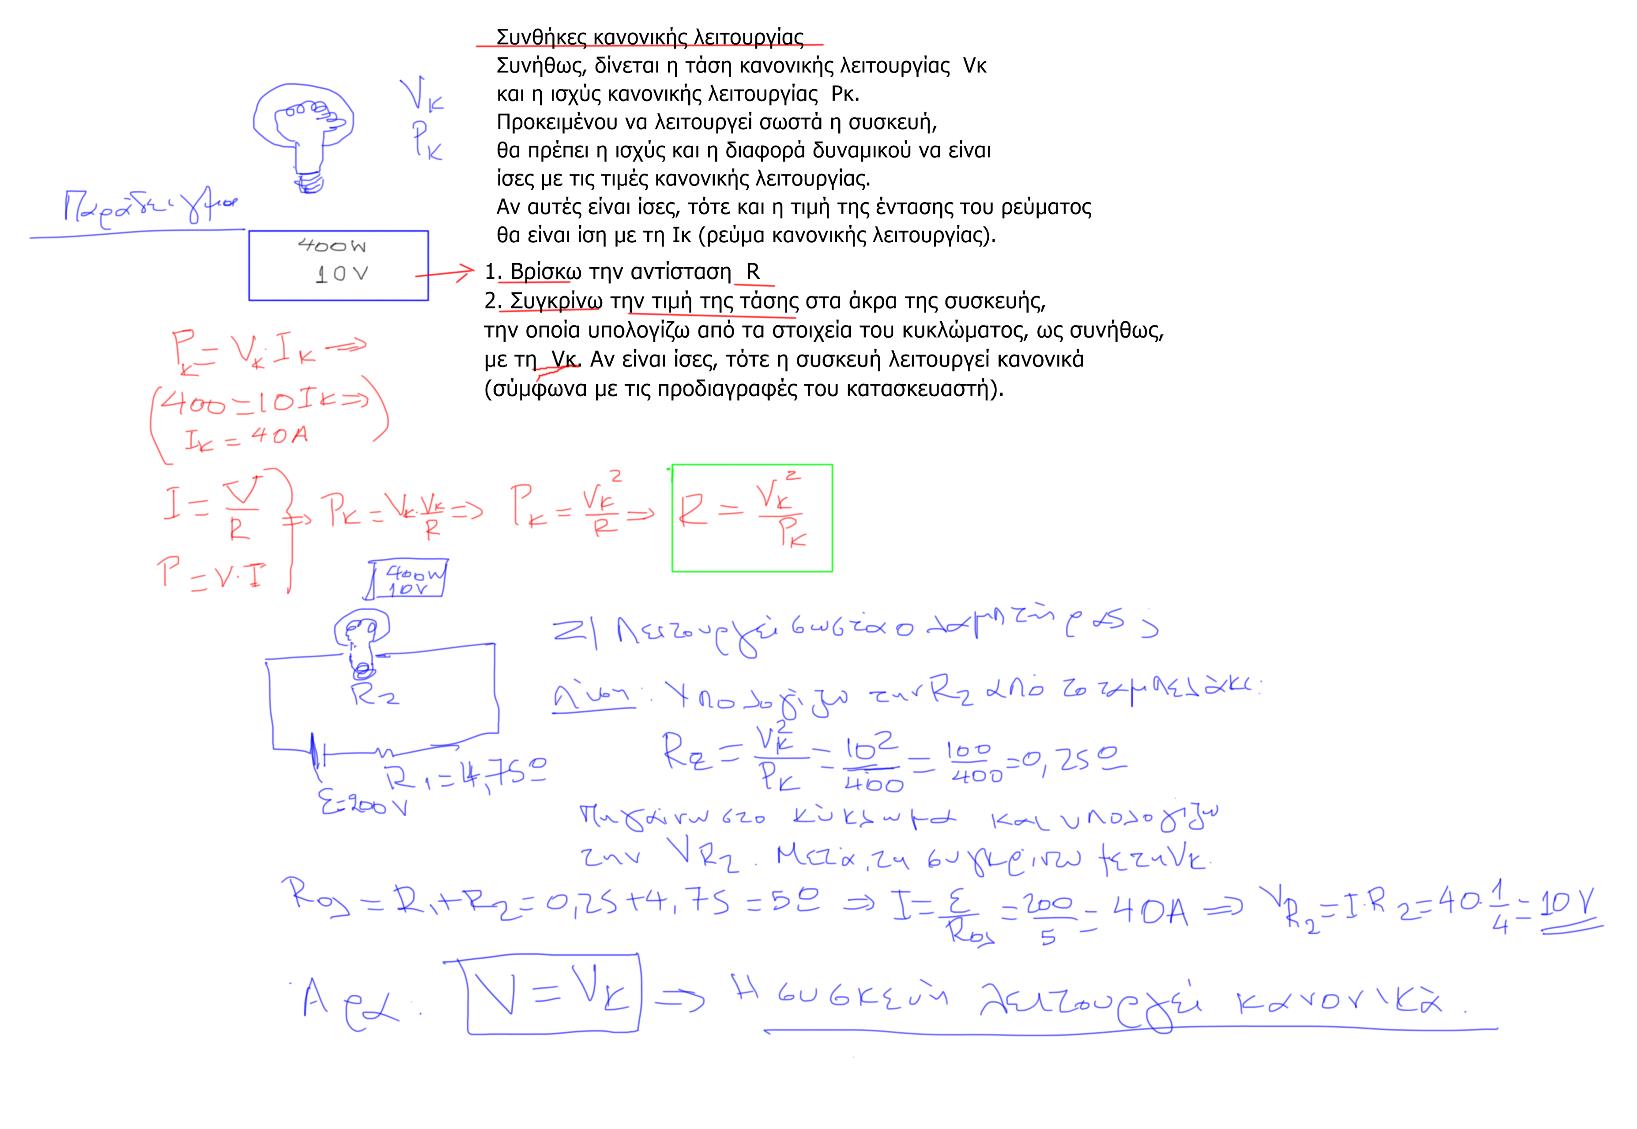 Συνθήκες κανονικής λειτουργίας
Συνήθως, δίνεται η τάση κανονικής λειτουργίας Vκ
και η ισχύς κανονικής λειτουργίας Pκ.
Προκειμένου να λειτουργεί σωστά η συσκευή,
θα πρέπει η ισχύς και η διαφορά δυναμικού να είναι
ίσες με τις τιμές κανονικής λειτουργίας.
Αν αυτές είναι ίσες, τότε και η τιμή της έντασης του ρεύματος
θα είναι ίση με τη Ικ (ρεύμα κανονικής λειτουργίας).
Vκ
Pκ
Παράδειγμα
400W
10V
1. Βρίσκω την αντίσταση R
2. Συγκρίνω την τιμή της τάσης στα άκρα της συσκευής,
την οποία υπολογίζω από τα στοιχεία του κυκλώματος, ως συνήθως,
με τη Vκ. Αν είναι ίσες, τότε η συσκευή λειτουργεί κανονικά
(σύμφωνα με τις προδιαγραφές του κατασκευαστή).
Pκ = Vκ·Iκ ⇒
(400=10Iκ⇒
Iκ = 40A)
I = V/R
P = V·I
⇒ Pκ = Vκ·Vκ/R ⇒ Pκ = Vκ²/R ⇒ R = Vκ²/Pκ
400W
10V
R2
R1=4,75Ω
ε=200V
Σ| Λειτουργεί σωστά ο λαμπτήρας;
Λύση: Υπολογίζω την R2 από το ταμπελάκι:
R2 = Vκ²/Pκ = 10²/400 = 100/400 = 0,25Ω
Πηγαίνω στο κύκλωμα και υπολογίζω
την VR2. Μετά, τη συγκρίνω με τη Vκ.
Rολ = R1+R2 = 0,25+4,75 = 5Ω ⇒ I = ε/Rολ = 200/5 = 40A ⇒ VR2 = I·R2 = 40·1/4 = 10V
Άρα: V = Vκ ⇒ Η συσκευή λειτουργεί κανονικά.